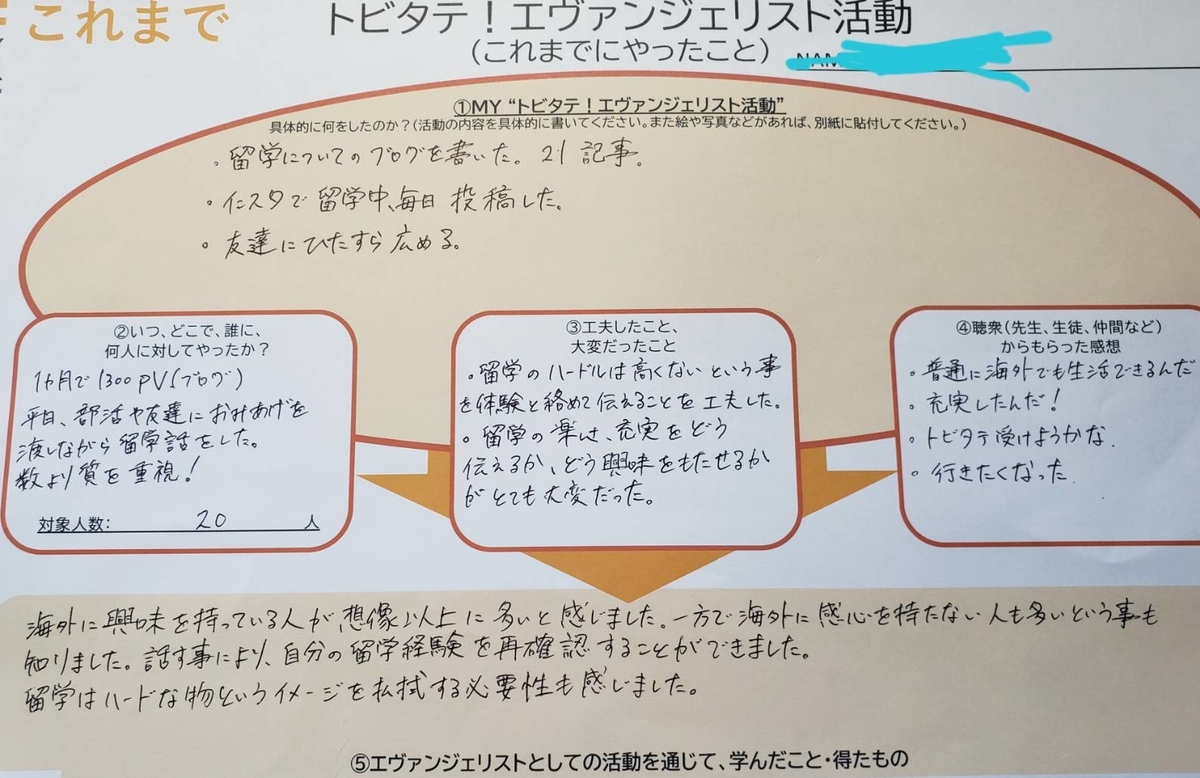 これまで
トビタテ！エヴァンジェリスト活動
（これまでにやったこと）
NAM
①MY “トビタテ！エヴァンジェリスト活動”
具体的に何をしたのか？（活動の内容を具体的に書いてください。また絵や写真などがあれば、別紙に貼付してください。）
・留学についてのブログを書いた。21記事。
・インスタで留学中、毎日投稿した。
・友達にひたすら広める。
②いつ、どこで、誰に、
何人に対してやったか？
1ヶ月で1300PV（ブログ）
平日、部活や友達におみあげを
渡しながら留学話をした。
数より質を重視！
対象人数： 20 人
③工夫したこと、
大変だったこと
・留学のハードルは高くないという事
を体験と絡めて伝えることを工夫した。
・留学の楽しさ、充実をどう
伝えるか、どう興味をもたせるか
がとても大変だった。
④聴衆（先生、生徒、仲間など）
からもらった感想
・普通に海外でも生活できるんだ
・充実したんだ！
・トビタテ受けようかな。
・行きたくなった
海外に興味を持っている人が、想像以上に多いと感じました。一方で海外に感心を持たない人も多いという事も
知りました。話す事により、自分の留学経験を再確認することができました。
留学はハードな物というイメージを払拭する必要性も感じました。
⑤エヴァンジェリストとしての活動を通じて、学んだこと・得たもの